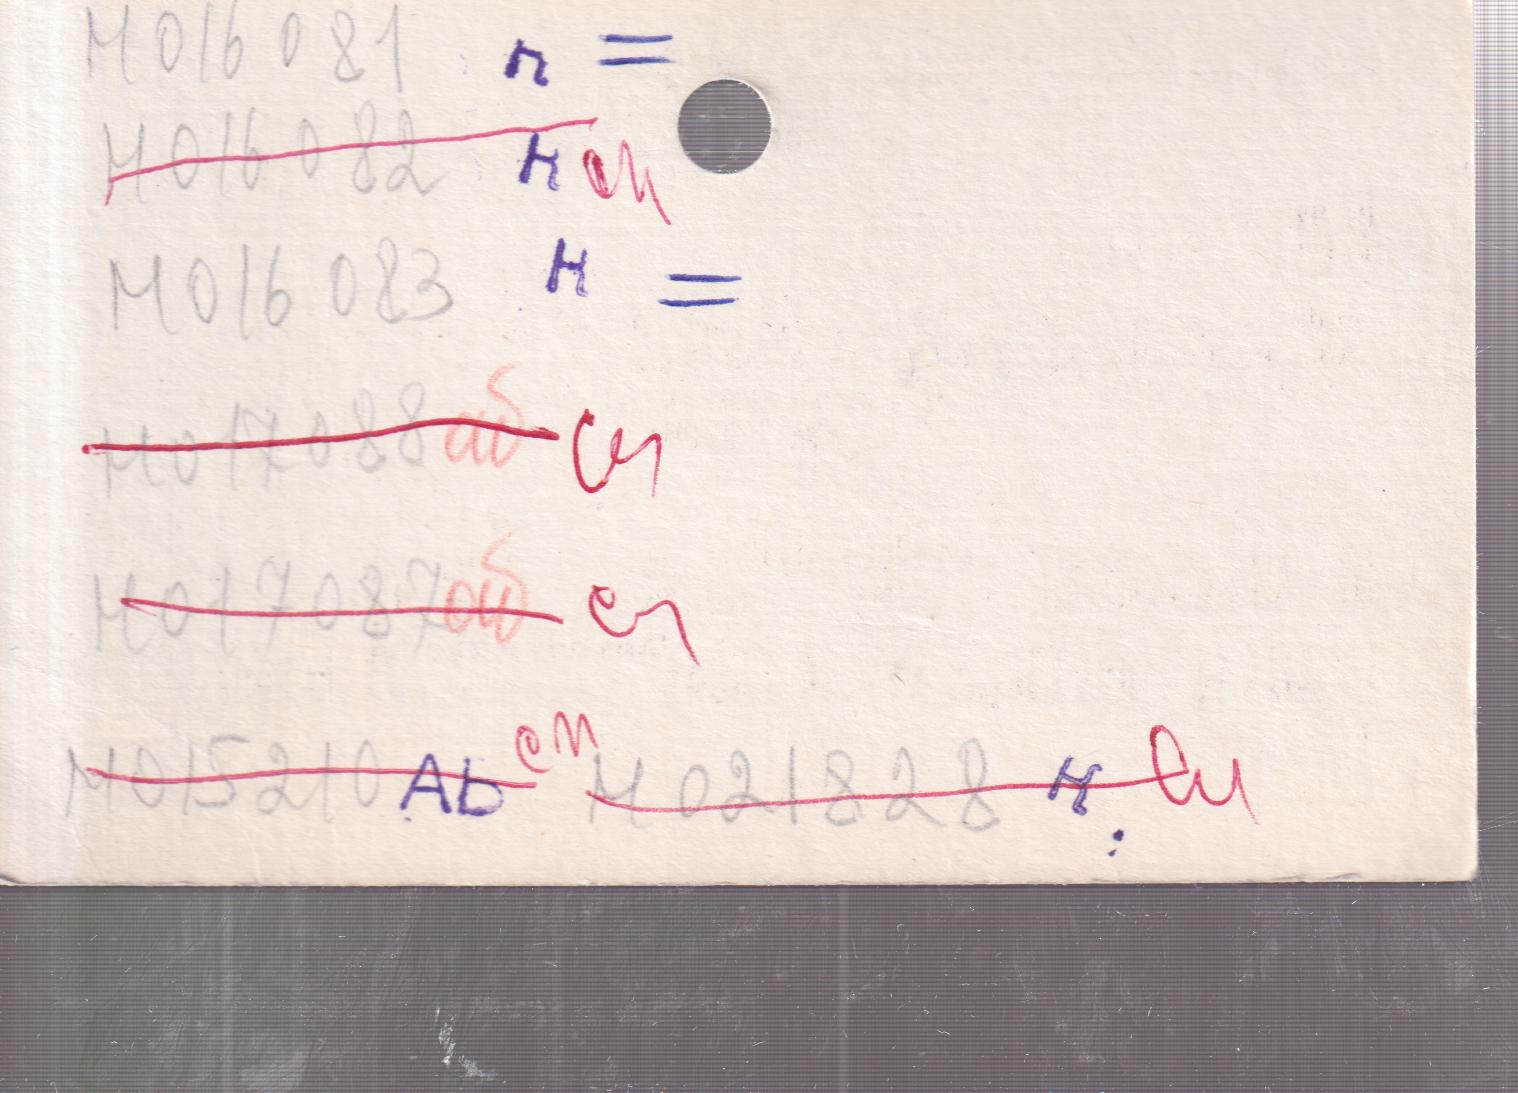 М016081 н =
М016082 н сп
М016083 н =
М017088 аб сп
М017087 аб сп
М015210 Аб сп М021828 н сп